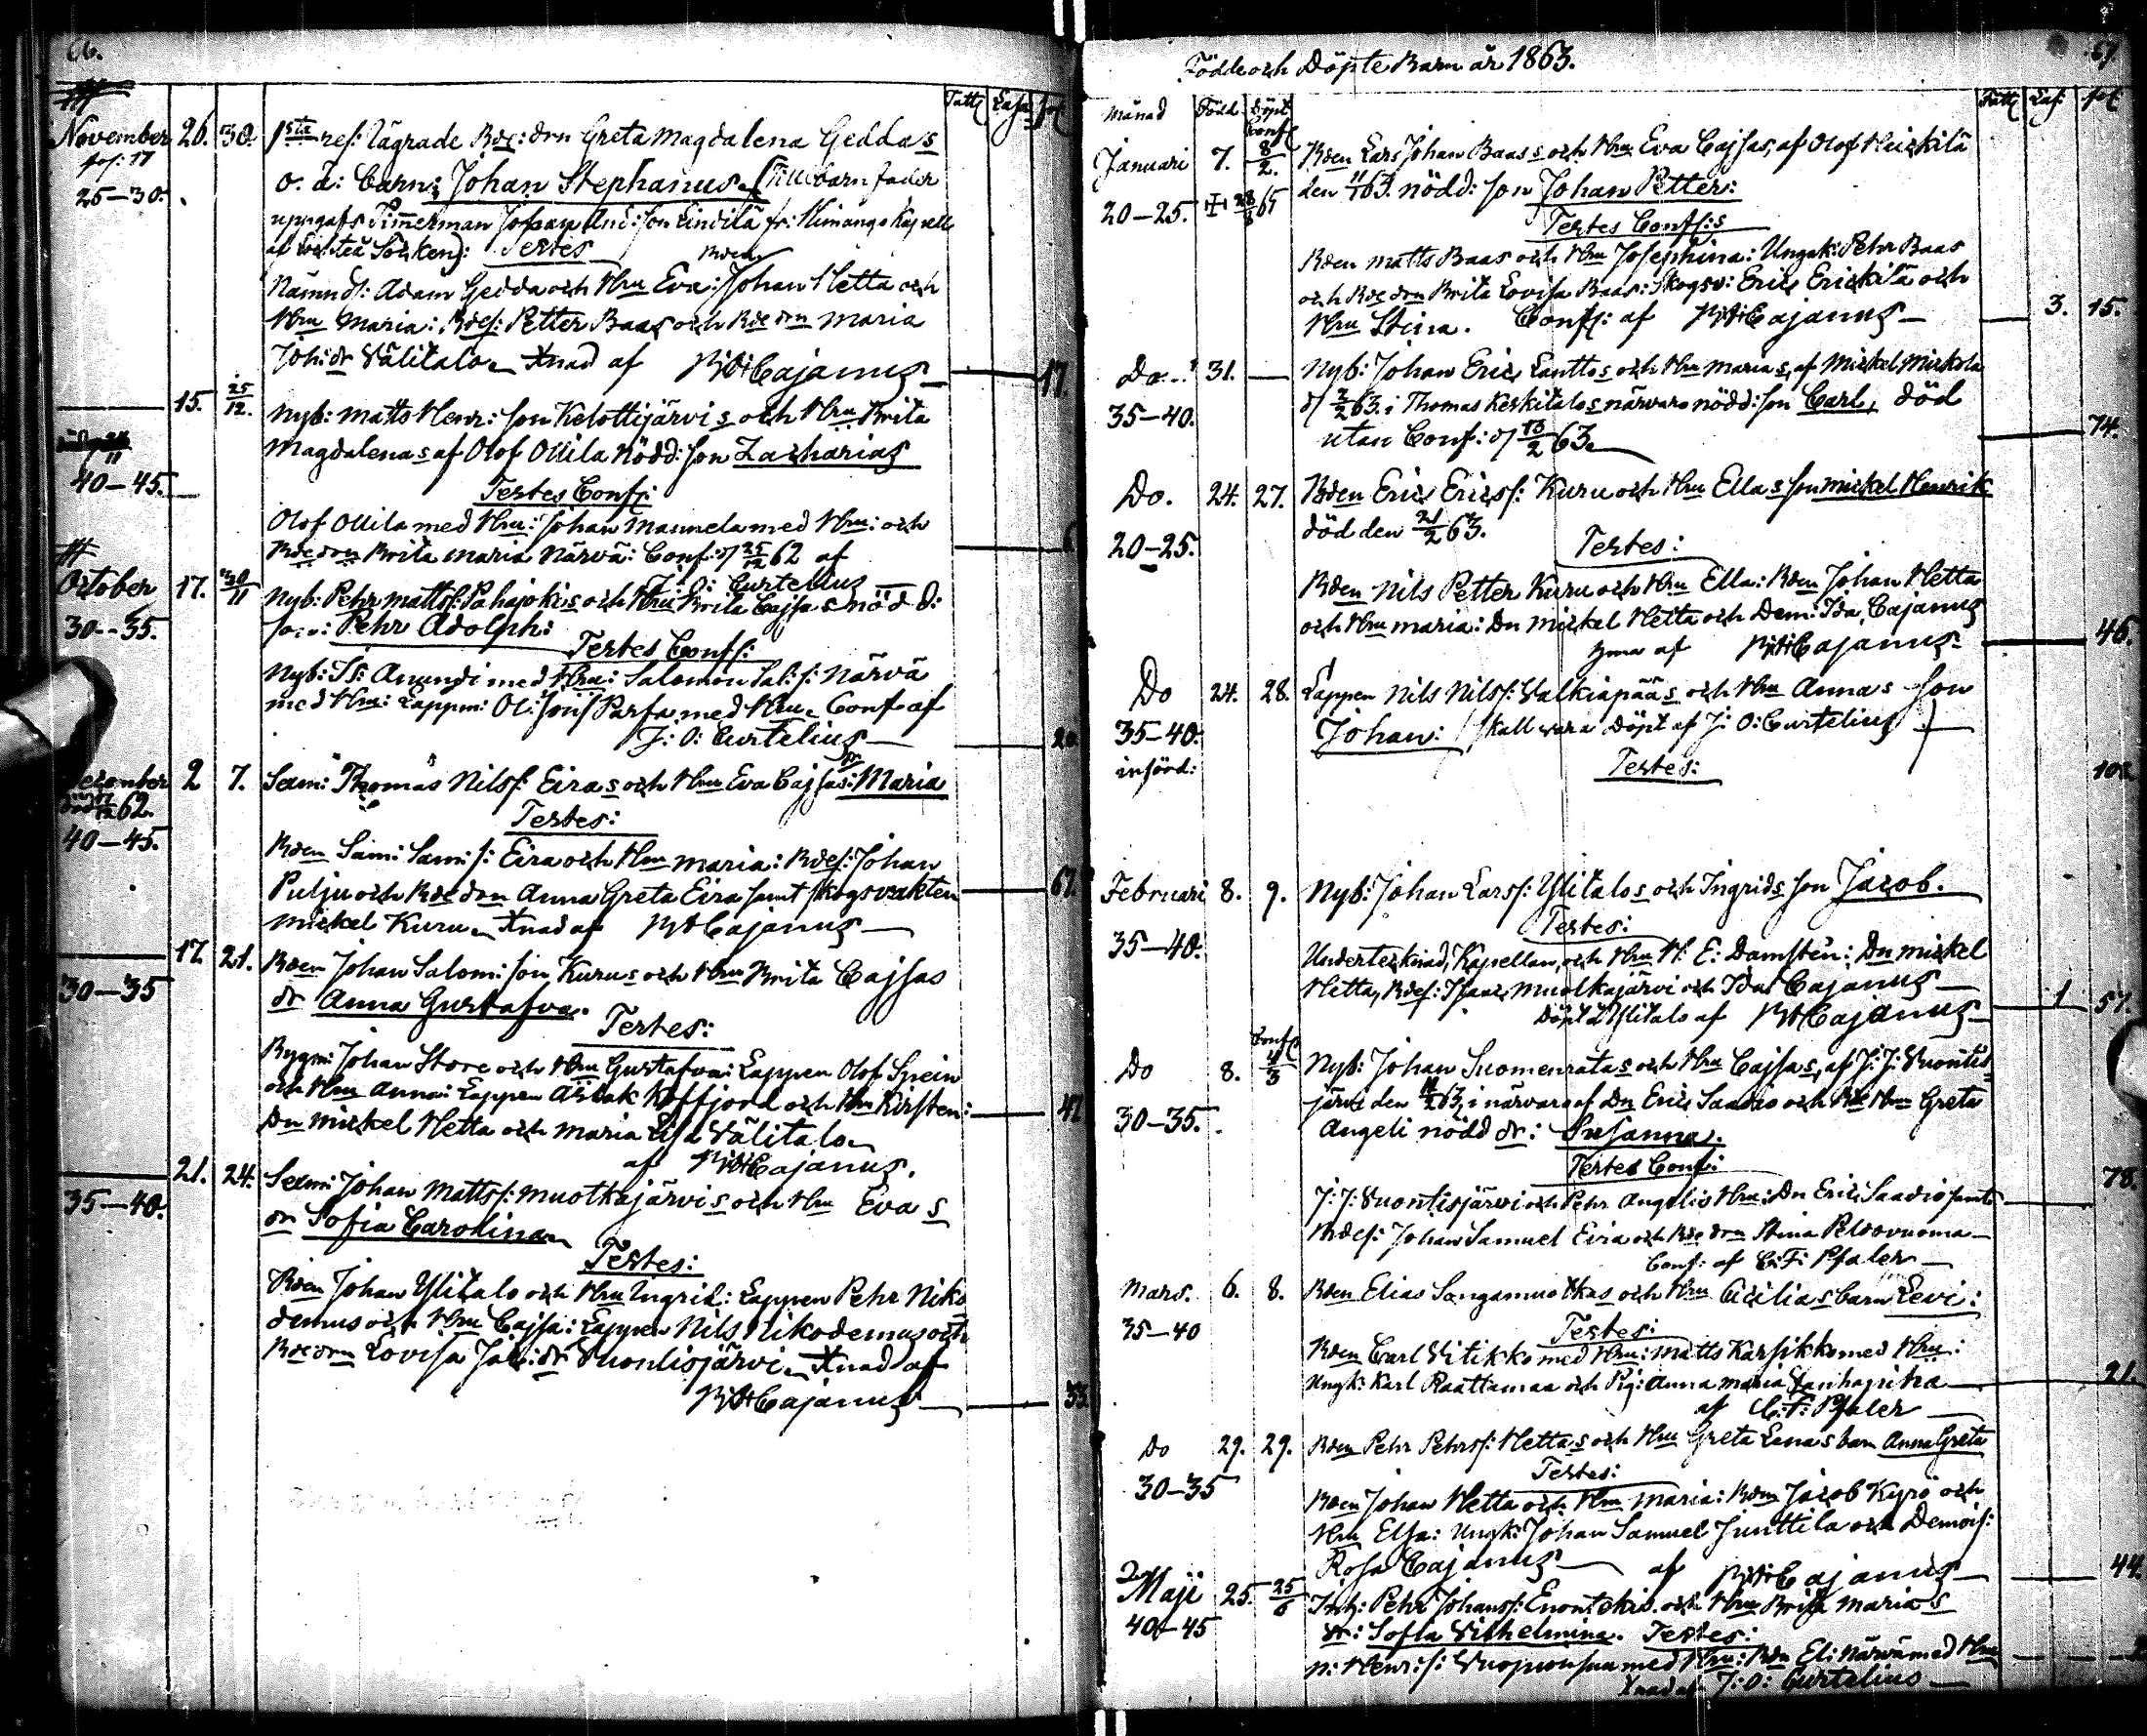 66.
Tatt Lasa fol
November 26. 30. 1sta res: Lägrade Bde: drn Greta Magdalena Geddas
fol: 17
o. ä: barn: Johan Stephanus (till barnfader
25—30.
uppgafs Timmerman Johan And: son Lindilä fr: Himango Kapell
af Socken): Testes
Nämnd: Adam Gedda och Hru Eva: Bden Johan Hetta och
Hru Maria: Bdes: Petter Baas och Bde drn Maria
Joh: dr Välitalo. Xnad af Cajanus 17.
15. 25/12. Nyb: Matts Henr: son Kelottijärvis och Hru Brita
Magdalenas af Olof Ollila Nödd: son Zacharias
40—45.
Testes Conf:
Olof Ollila med Hru: Johan Mannela med Hru: och
Bde drn Brita Maria Närvä: Conf: d 25/12 62 af
J: O: Curtelius
October 17. 30/11 Nyb: Pehr Matts: Pahajokis och Hru Brita Cajsas nödd:
30--35. son: Pehr Adolph:
Testes Conf:
Nyb: Is: Anundi med Hru: Salomon Sal: s: Närvä
med Hru: Lappm: Ol: Jöns Parfa med Hru. Conf af
J: O: Curtelius 20
December 2 7. Sexm: Thomas Nils: Eiras och Hru Eva Cajsas: dr Maria
62.
Testes:
40—45.
Bden Sam: Sam: s: Eira och Hru Maria: Bdes: Johan
Pulju och Bde drn Anna Greta Eira samt skogsvakten 67.
Mickel Kuru. Xnad af Cajanus
17. 21. Bden Johan Salom: son Kurus och Hru Brita Cajsas
30—35 dr Anna Gustafva.
Testes:
Bygm: Johan Store och Hru Gustafva: Lappen Olof Spein
och Hru Anna: Lappen Aslak Koffjord och Hru Kirsten: 47
Dn Mickel Hetta och Maria Lisa Välitalo
af Cajanus.
21. 24. Sexm: Johan Matts: Muotkajärvis och Hru Evas
35—40. dr Sofia Carolina
Testes:
Bden Johan Ylitalo och Hru Ingrid: Lappen Pehr Niko
demus och Hru Cajsa: Lappen Nils Nikodemus och
Bde drn Lovisa Jak: dr Vuontisjärvi. Xnad af
Cajanus 33.
67.
Födde och Döpte Barn år 1863.
Månad Född Döpt Tatt Las: fol
Conf
Januari 7. 8/2. Bden Lars Johan Baass och Hru Eva Cajsas, af Olof Heickilä
den 11/1 63. nödd: son Johan Petter:
20—25. 28/8 65
Testes Conf:s
Bden Matts Baas och Hru Josephina: Ungk: Pehr Baas
och Bde drn Brita Lovisa Baas: Skogsv: Eric Erickilä och
Hru Stina. Conf: af Cajanus 3. 15.
Do. 31. — Nyb: Johan Eric Lanttos och Hru Marias, af Mickel Mickola
d 2/2 63. i Thomas Keskitalos närvaro nödd: son Carl, död
35—40.
utan Conf: d 13/2 63. 74.
Do. 24. 27. Bden Eric Erics: Kuru och Hru Ellas son Mickel Henrik
död den 21/2 63.
20—25. Testes:
Bden Nils Petter Kuru och Hru Ella: Bden Johan Hetta
och Hru Maria: Dn Mickel Hetta och Dem: Ida Cajanus
af Cajanus 46.
Do 24. 28. Lappen Nils Nils: Valkiapääs och Hru Annas son
35—40. Johan: (skall vara döpt af J: O: Curtelius)
införd: Testes: 102.
Februari 8. 9. Nyb: Johan Lars: Ylitalos och Ingrids son Jacob.
Testes:
35—40.
Undertecknad, Kapellan, och Hru H: E: Damstén: Dn Mickel
Hetta, Bdes: Isaac Muotkajärvi och Ida Cajanus
Döpt i Ylitalo af Cajanus 1 57.
Conf
Do 8. 4/3 Nyb: Johan Suomenratas och Hru Cajsas, af J: J: Vuontis-
järvi den 11/2 63, i närvaro af Dn Eric Saadio och Hru Greta
30—35.
Angeli nödd dr: Susanna.
Testes Conf:
J: J: Vuontisjärvi och Pehr Angelis Hru: Dn Eric Saadio samt 78.
Bdes: Johan Samuel Eira och Bde drn Stina Peldovuoma
Conf: af C: F: Pfaler
Mars. 6. 8. Bden Elias Songamuotkas och Hru Cicilias barn Levi:
35—40 Testes:
Bden Carl Vitikko med Hru: Matts Karsikko med Hru:
Ungk: Karl Raattamaa och Pig: Anna Maria Vanhapiha 21.
af C: F: Pfaler
Do 29. 29. Bden Pehr Pehrs: Hettas och Hru Greta Lenas barn Anna Greta
Testes:
30—35
Bden Johan Hetta och Hru Maria: Bden Jacob Kyrö och
Hru Elsa: Ungk: Johan Samuel Junttila och Demois:
Rosa Cajanus af Cajanus 44.
Maji 25. 25/6 Inh: Pehr Johans: Enontekis och Hru Brita Marias
40—45 dr: Sofia Vilhelmina. Testes:
P: Henr: s: Vuopionsuu med Hru: Bdn El: Närvä med Hru
Xnad af J: O: Curtelius